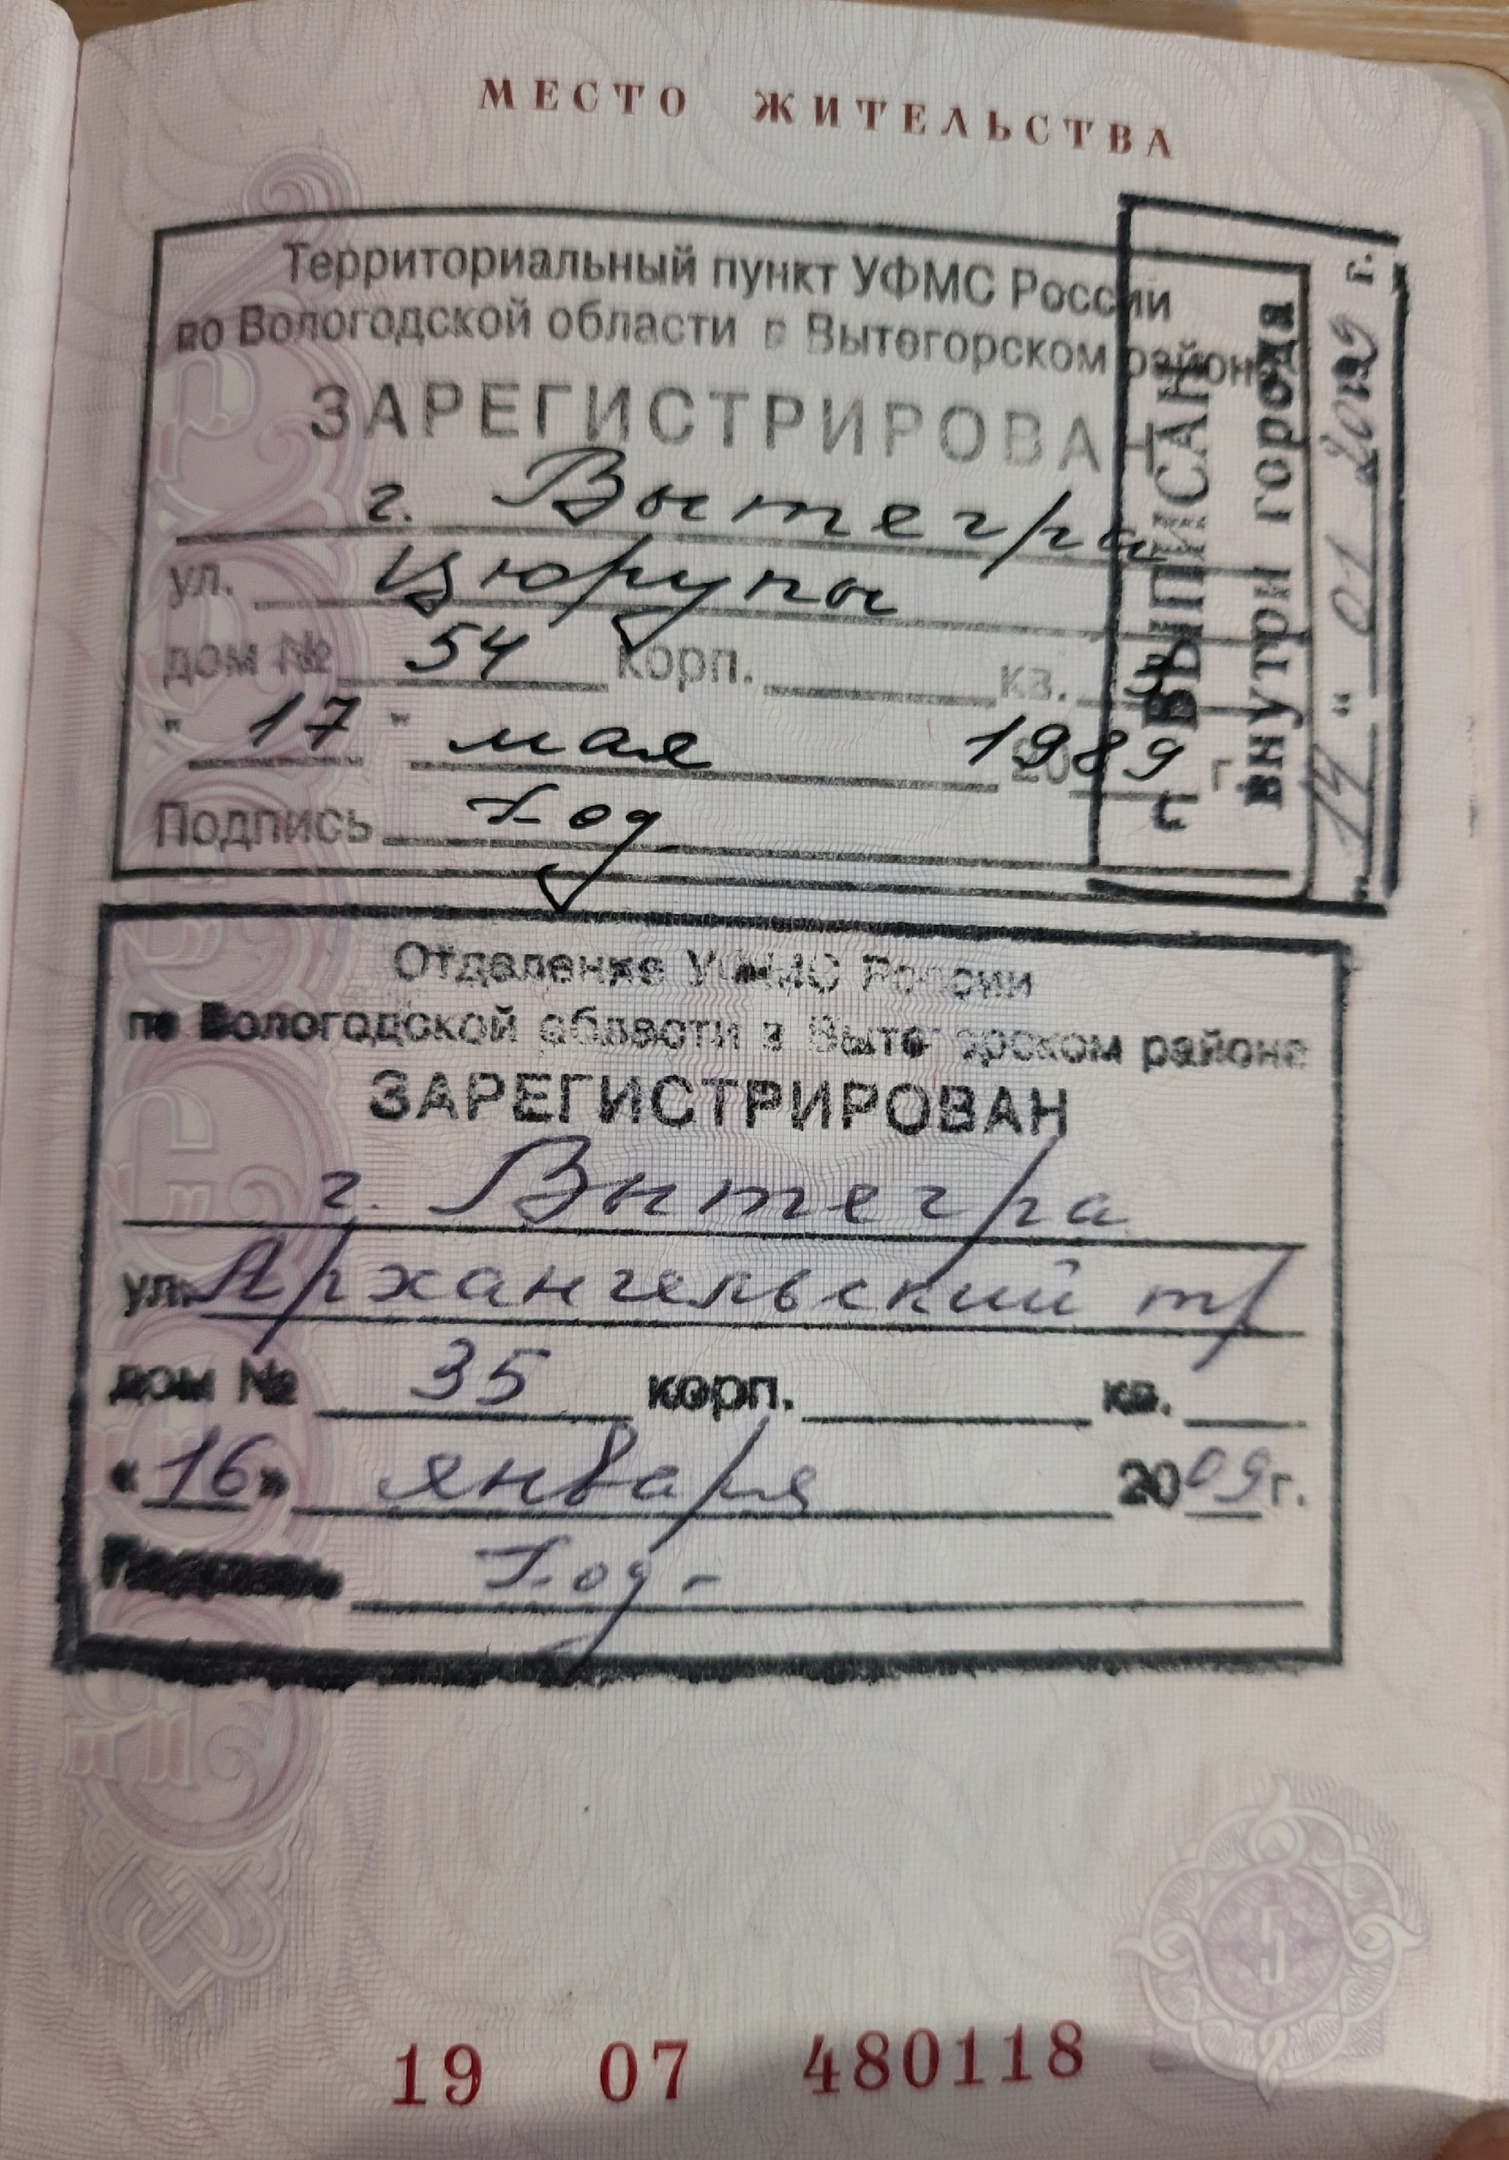 МЕСТО ЖИТЕЛЬСТВА
Территориальный пункт УФМС России
по Вологодской области в Вытегорском районе
ЗАРЕГИСТРИРОВАН
г. Вытегра
ул. Цюрупы
дом № 54 корп. кв.
" 17 " мая 1989 г.
Подпись
С ВЫПИСАН
внутри города
" 14 " 01 2009 г.
Отделение УФМС России
по Вологодской области в Вытегорском районе
ЗАРЕГИСТРИРОВАН
г. Вытегра
ул. Архангельский тр
дом № 35 корп. кв.
« 16 » января 2009 г.
Подпись
5
19 07 480118